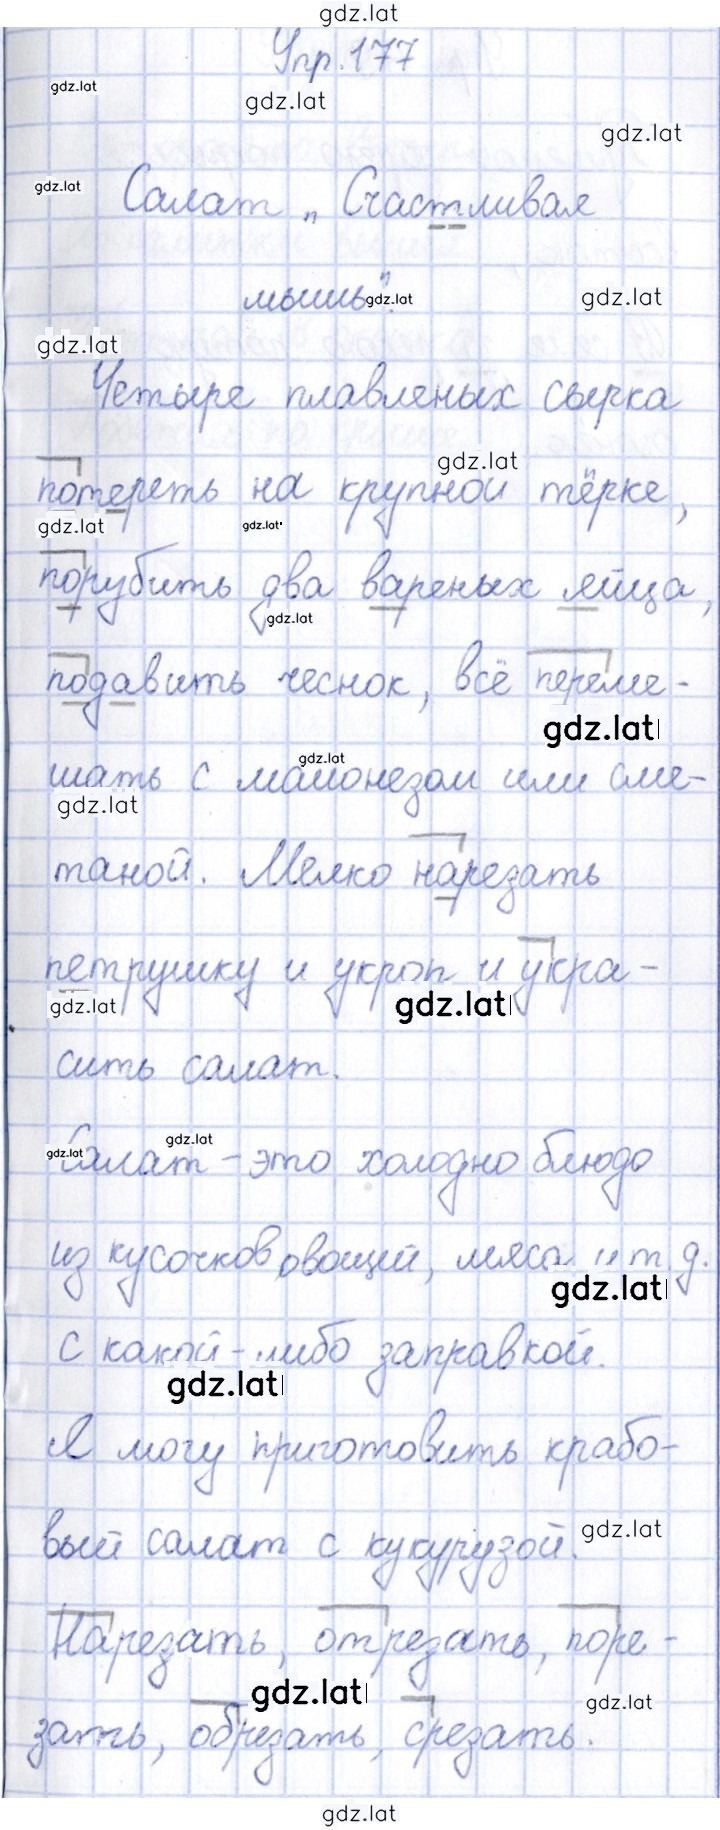 gdz.lat
Упр. 177
gdz.lat
gdz.lat
gdz.lat
gdz.lat
Салат „Счастливая
мышь".
gdz.lat
gdz.lat
gdz.lat
Четыре плавленых сырка
gdz.lat
потереть на крупной тёрке,
gdz.lat
gdz.lat
порубить два вареных яйца,
gdz.lat
подавить чеснок, всё переме-
gdz.lat
gdz.lat
шать с майонезом или сме-
gdz.lat
таной. Мелко нарезать
петрушку и укроп и укра-
gdz.lat
gdz.lat
сить салат.
gdz.lat
gdz.lat
Салат - это холодно блюдо
из кусочков овощей, мяса и т. д.
gdz.lat
с какой-либо заправкой.
gdz.lat
Я могу приготовить крабо-
вый салат с кукурузой.
gdz.lat
Нарезать, отрезать, поре-
gdz.lat
gdz.lat
зать, обрезать, срезать.
gdz.lat